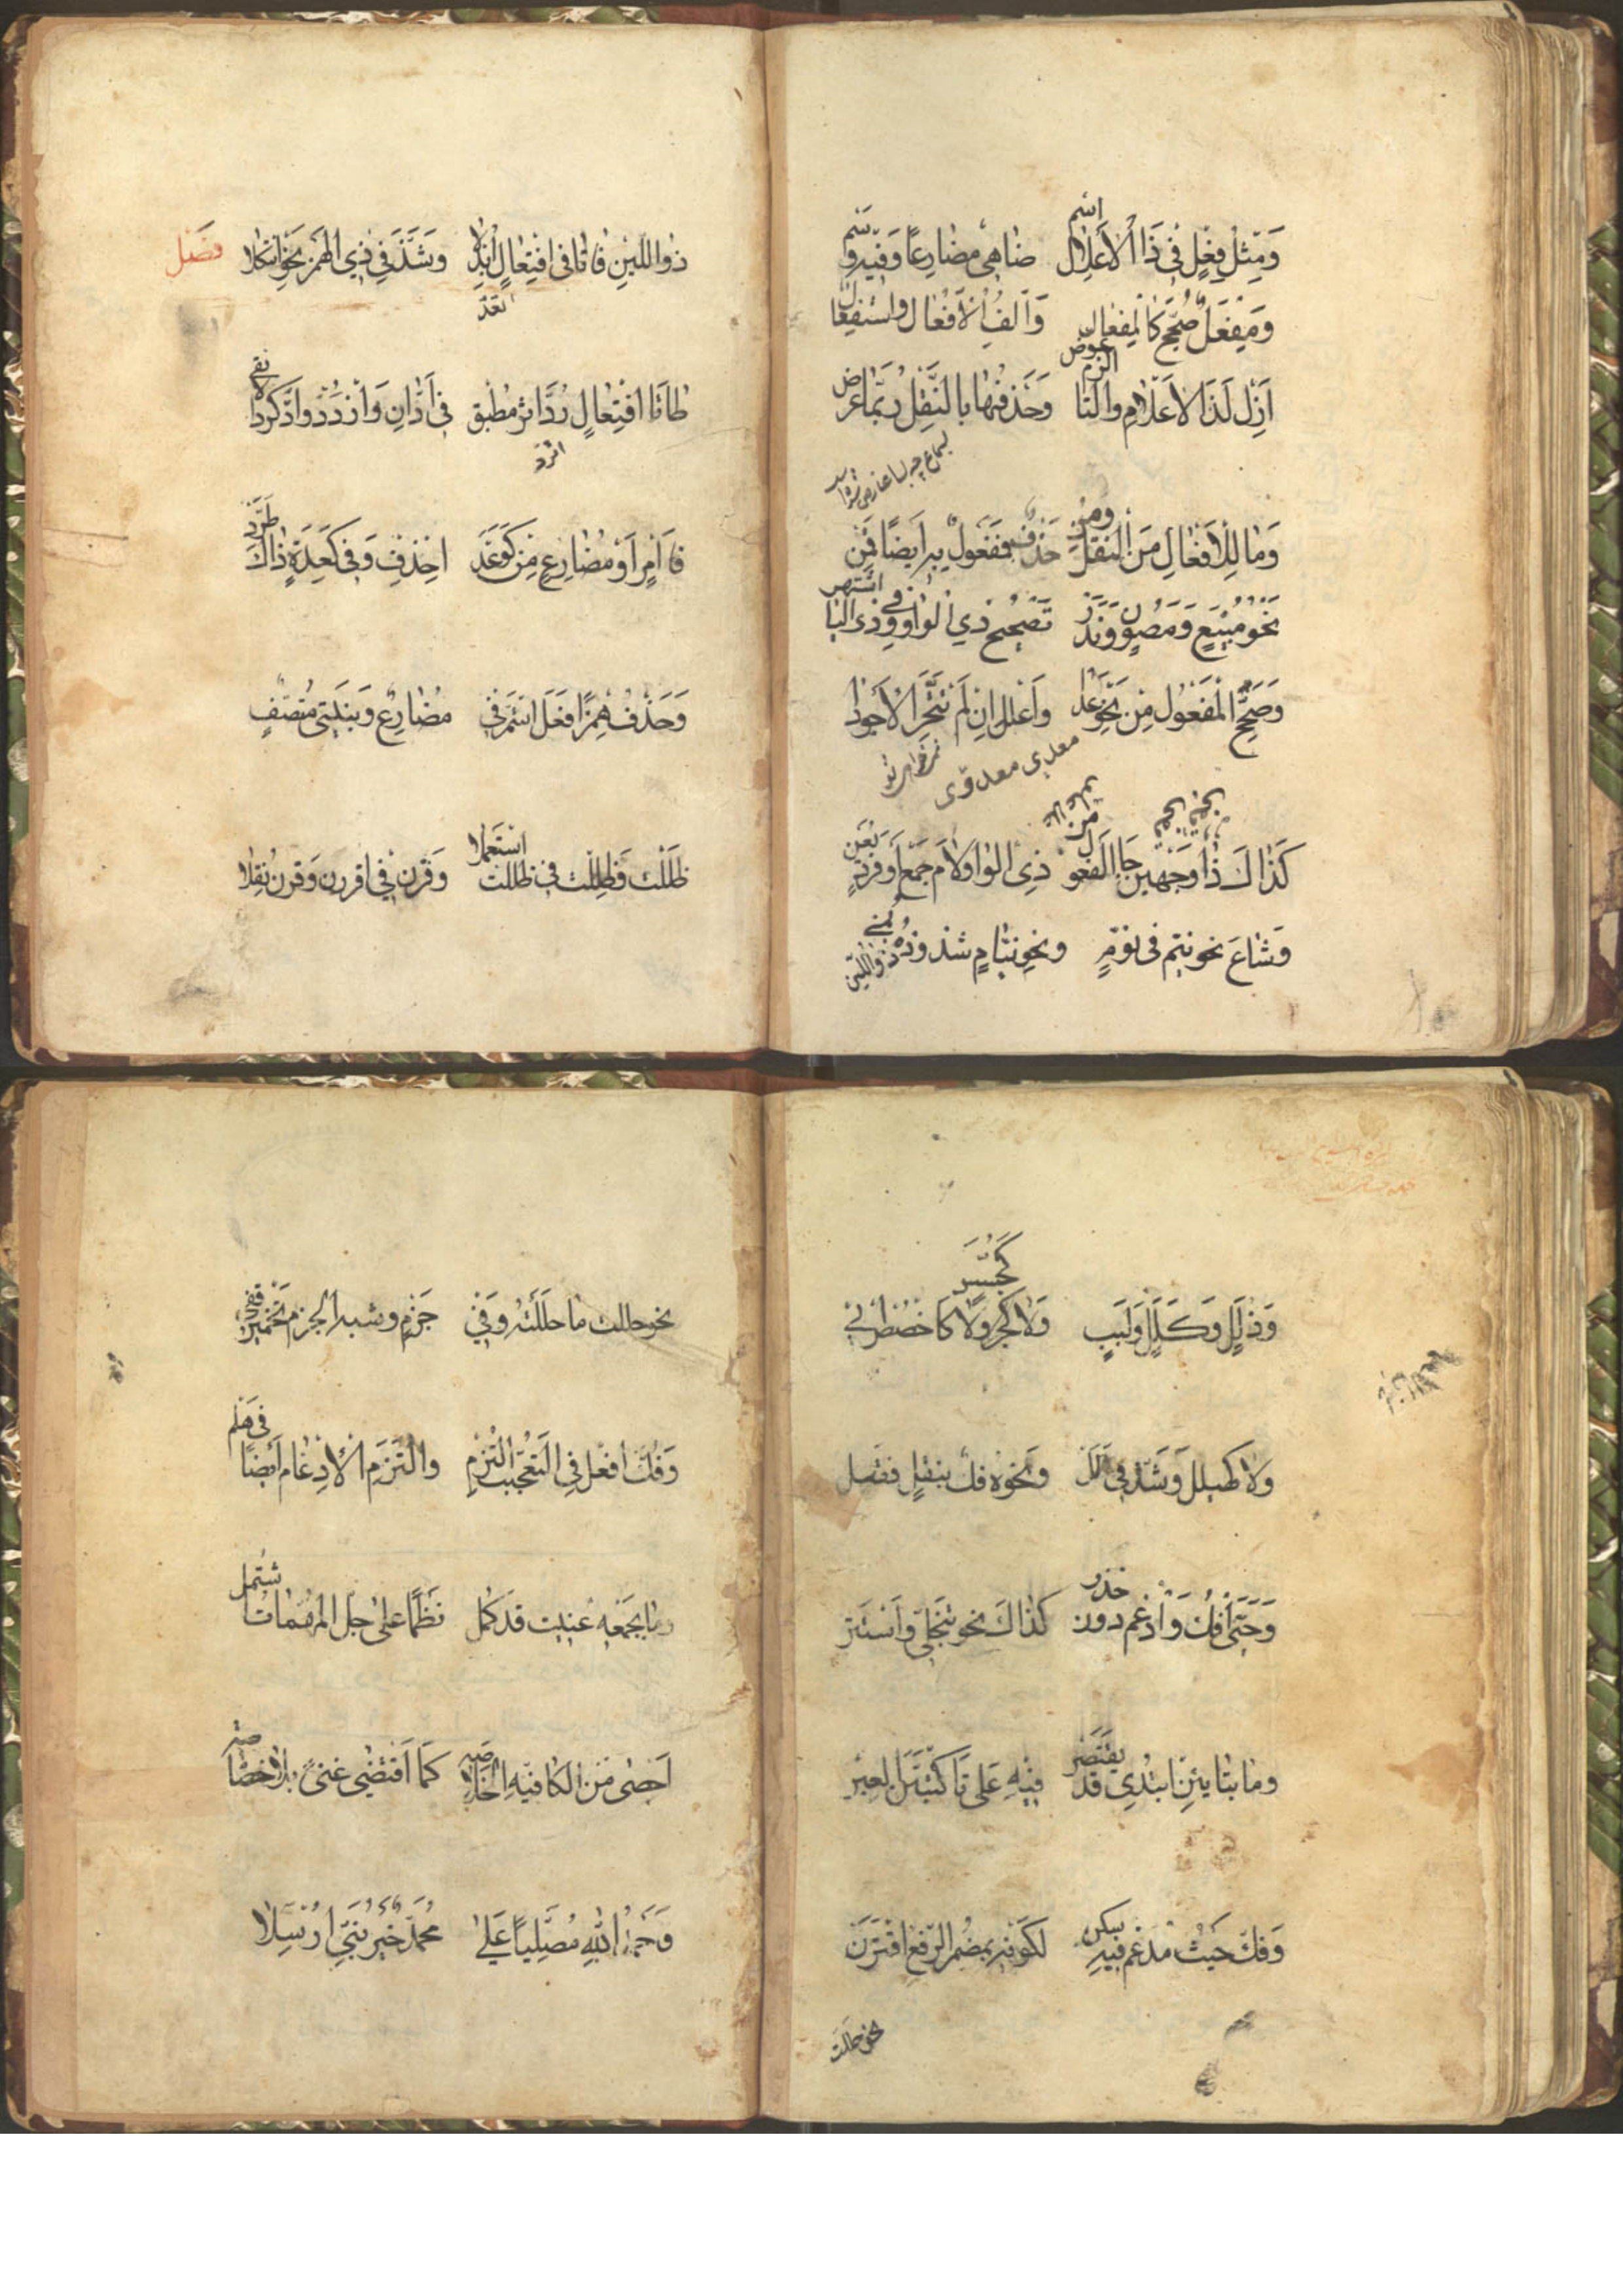 وَمِثْلُ فِعْلٍ فِي ذَا الْأَعْلَالِ اسْمٌ ضاهى مضارعًا وَفِيهِ وَسْمٌ
وَمِفْعَلٌ صُحِّحَ كَالْمِفْعَالِ وَأَلِفُ الْأَفْعَالِ واستفعال
أَزِلْ لَذَا الأعلالِ والتا الزم عوض وَحَذْفُهَا بِالنَّقْلِ رُبَّمَا عرض
وَمَا لِلْأَفْعَالِ مِنَ النَّقْلِ وَمِنْ حَذْفٍ فَمَفْعُولٌ بِهِ أَيْضًا قَمِنْ
نَحْوُ مَبِيعٍ وَمَصُونٍ وَنَدَرْ تَصْحِيحُ ذِي الْوَاوِ وَفِي ذي اليا اشتهر
وَصَحِّحِ الْمَفْعُولَ مِنْ نَحْوِ عَدَا وَأَعْلِلْ إِنْ لَمْ تَتَحَرَّ الْأَجْوَدَا
معدى معدوّى
كَذَاكَ ذَا وَجْهَيْنِ جَا الْفُعُولُ مِنْ ذِي الواو لامَ جَمْعٍ أَوْ فَرْدٍ يَعِنْ
وَشَاعَ نحو نيّم في نوّمٍ ونحو نيّامٍ شذوذه نمي
ذو اللين
فصل
ذُو اللِّينِ فَا تَا فِي افْتِعَالٍ أُبْدِلَا وَشَذَّ فِي ذِي الْهَمْزِ نَحْوِ ائْتَكَلَا
طَا تَا افْتِعَالٍ رُدَّ اثر مُطْبَق فِي ادَّانَ وَازْدَدْ وَادَّكِرْ دَالًا بَقِي
فَا أَمْرٍ أَوْ مُضَارِعٍ مِنْ كَوَعَدْ احْذِفْ وَفِي كَعِدَةٍ ذَاكَ اطَّرَدْ
وَحَذْفُ هَمْزِ أَفْعَلَ اسْتَمَرَّ فِي مُضَارِعٍ وَبِنْيَتَيْ مُتَّصِفِ
ظَلْتُ وَظِلْتُ في ظللت اسْتُعْمِلَا وَقَرْنَ فِي اقررن وَقِرْنَ نُقِلَا
وَذُلَلٍ وَكِلَلٍ وَلَبَبِ وَلَا كَجُسَّسٍ وَلَا كَاخْصُصَ ابِي
ولا كهيلل وَشَذَّ فِي أَلِلْ وَنَحْوِهِ فَكٌّ بنقلٍ فقبل
وَحَيِيَ افْكُكْ وَادَّغِمْ دُونَ حذر كَذَاكَ نحو تتجلى وَاسْتَتَرْ
وما بتاءين ابْتُدِي قد يُقْتَصَرْ فِيهِ عَلَى تَا كَتَبَيَّنُ الْعِبَرْ
وَفُكَّ حَيْثُ مُدْغَمٌ فِيهِ سكن لكونه بمضمر الرفع اقْتَرَنْ
نحو حللت
نحو حللت ما حَلَلْتُهُ وَفِي جَزْمٍ وشبه الجزم تَخْيِيرٌ قفي
وَفَكُّ أَفْعِلْ فِي التَّعَجُّبِ الْتُزِمْ وَالْتُزِمَ الْأِدْغَامُ أَيْضًا فِي هَلُمّ
وما بجمعه عنيت قَدْ كَمَلْ نَظْمًا على جلّ المهمّات اشْتَمَلْ
أَحْصَى مِنَ الْكَافِيَةِ الْخُلَاصَهْ كَمَا اقْتَضَى غِنًى بِلَا خَصَاصَهْ
وَحَمْدُ اللهِ مُصَلِّيًا عَلَى مُحَمَّدٍ خَيْرِ نَبِيٍّ أُرْسِلَا